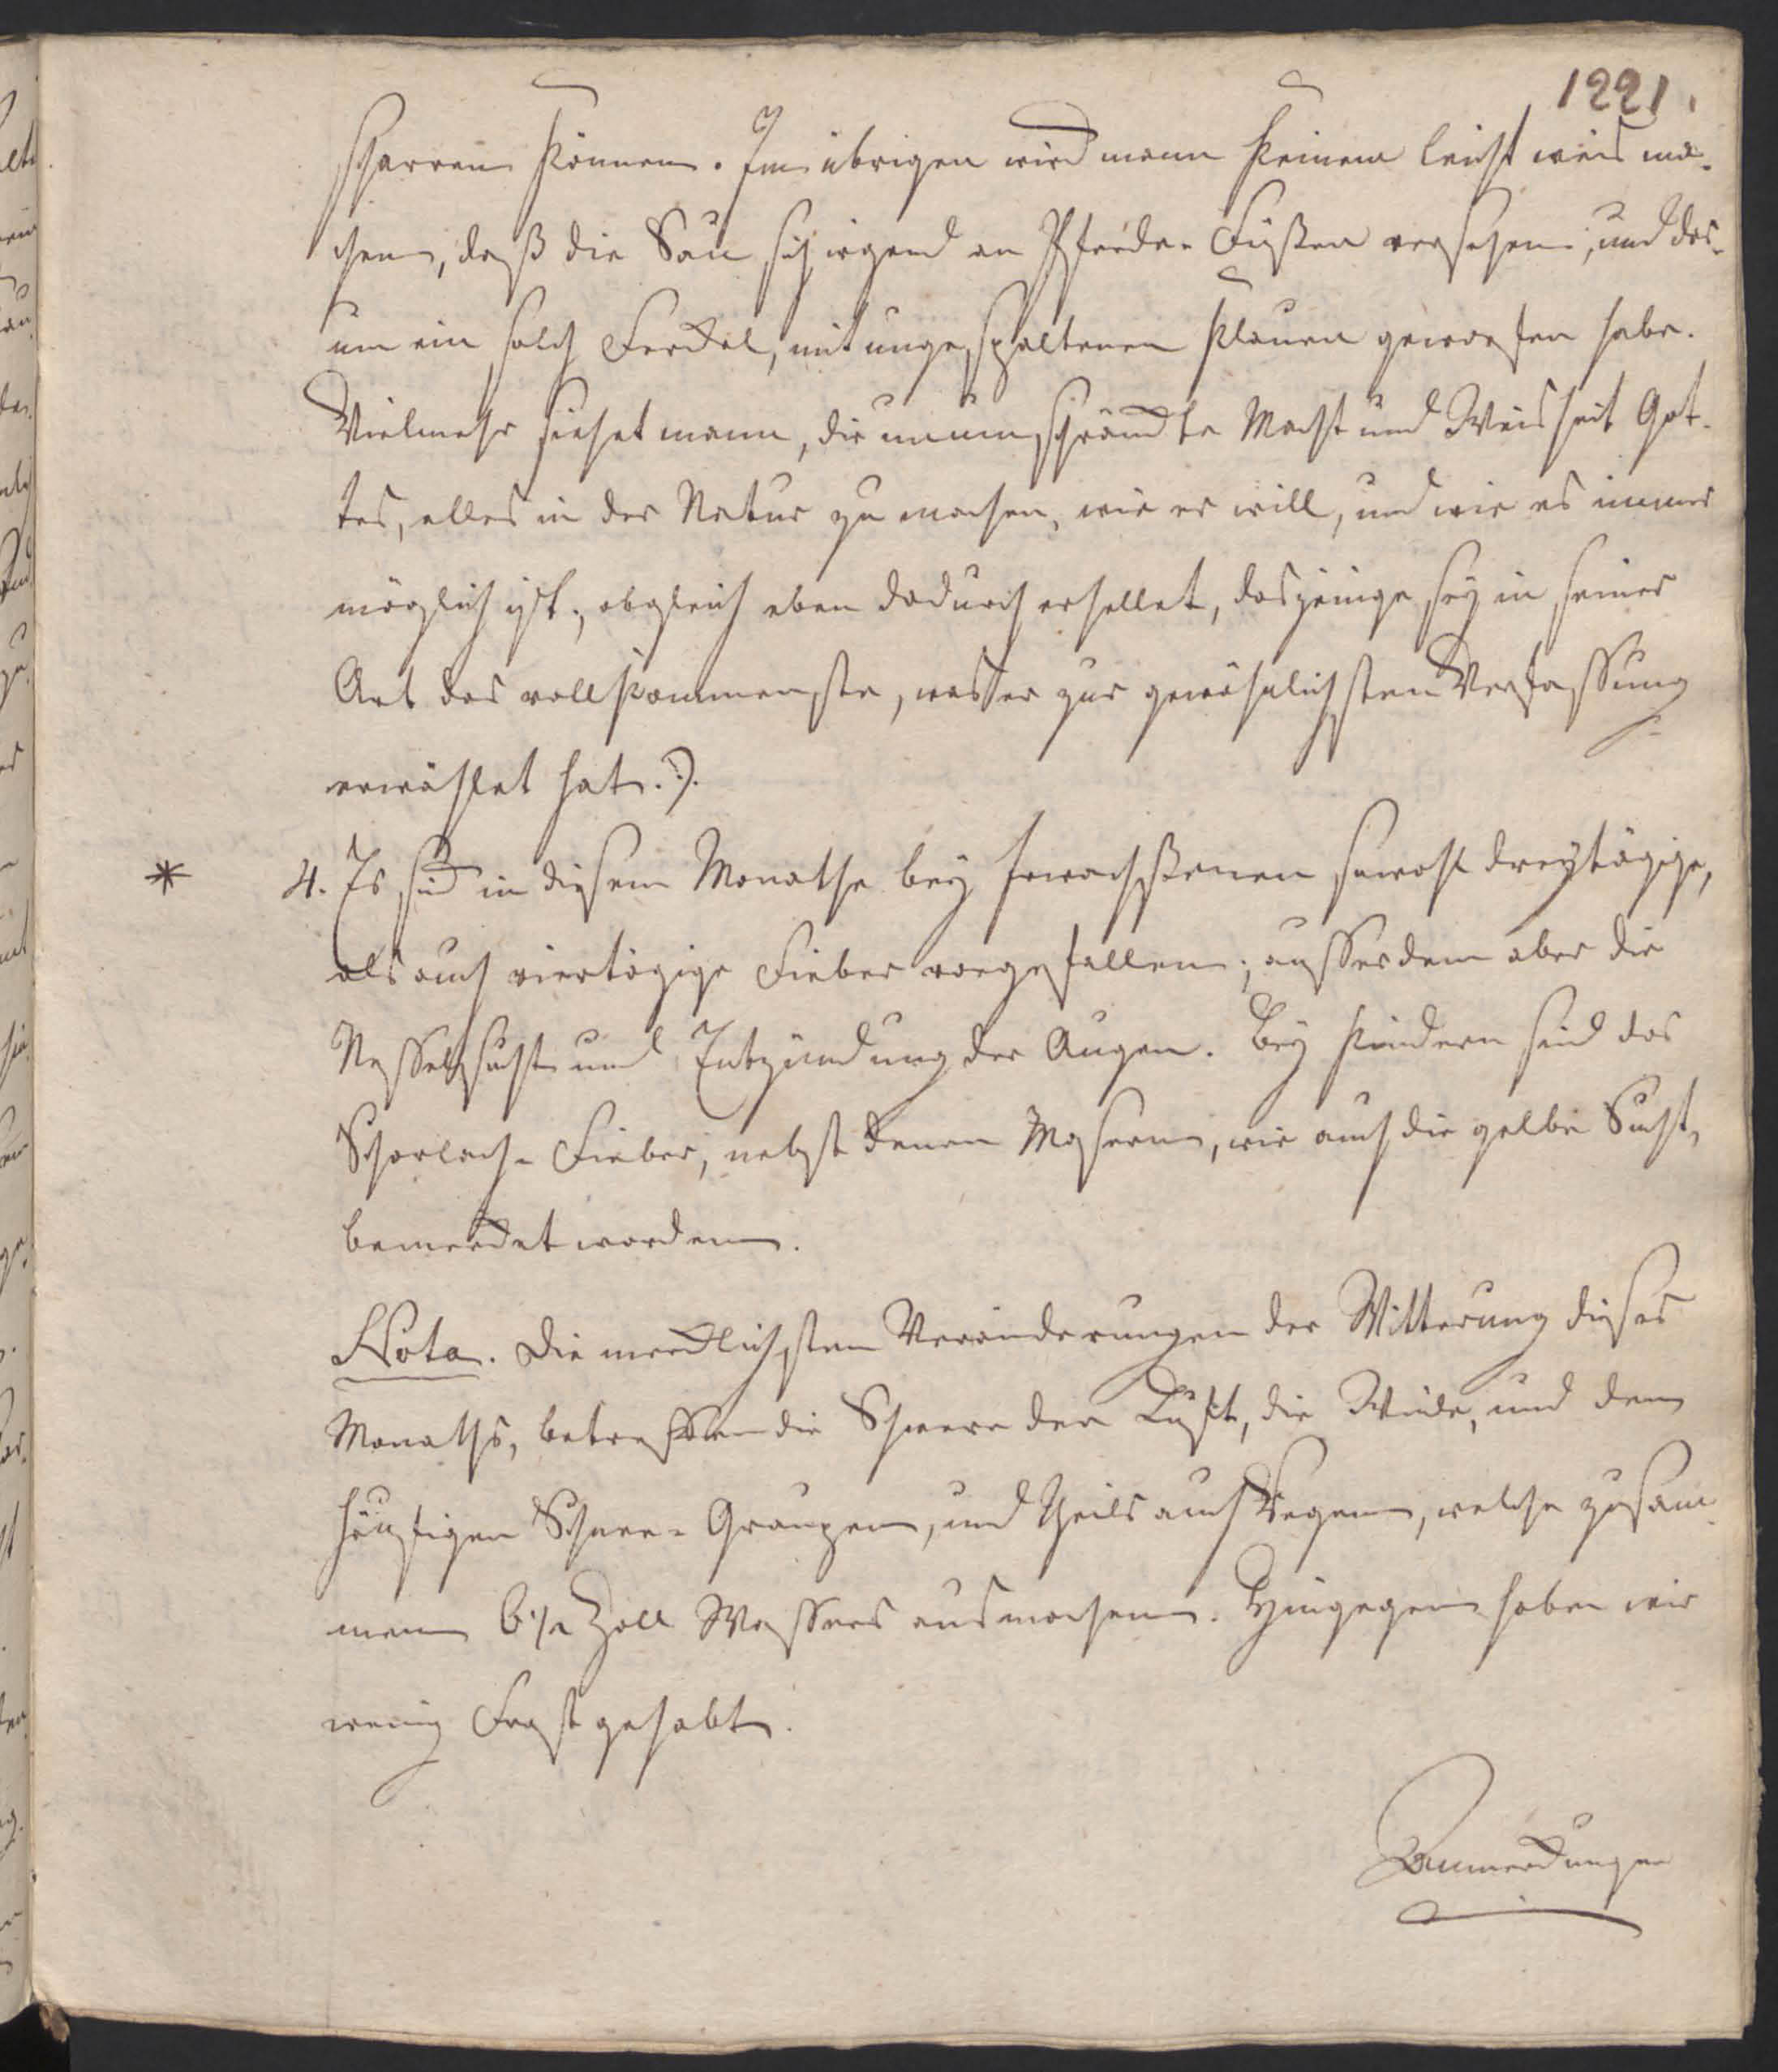 1221.
scharren können. Im übrigen wird mann keinem leicht weis ma-
chen, daß die Sau sich irgend an Pferde-Füßen versehen, und dar-
um ein solch Ferckel, mit ungespaltenen Klauen geworfen habe.
Vielmehr siehet mann, die unumschränckte Macht und Weisheit Got-
tes, alles in der Natur zu machen, wie er will, und wie es immer
möglich ist; obgleich eben dadurch erhellet, dasjenige sey in seiner
Art das vollkommenste, was er zur gewöhnlichsten Verfassung
erwählet hat.:).
* 4. Es sind in diesem Monathe bey Erwachßenen sowohl dreytägige,
als auch viertägige Fieber vorgefallen; ausserdem aber die
Nesselsucht und Entzündung der Augen. Bey Kindern sind das
Scharlach-Fieber, nebst denen Masern, wie auch die gelbe Sucht,
bemercket worden.
Nota. Die mercklichsten Veränderungen der Witterung dieses
Monaths, betreffen die Schwere der Luft, die Winde, und den
häufigen Schnee-Graupen, und theils auch Regen, welche zusam-
men 6 1/2 Zoll Wassers ausmachen. Hingegen haben wir
wenig Frost gehabt.
Anmerckungen